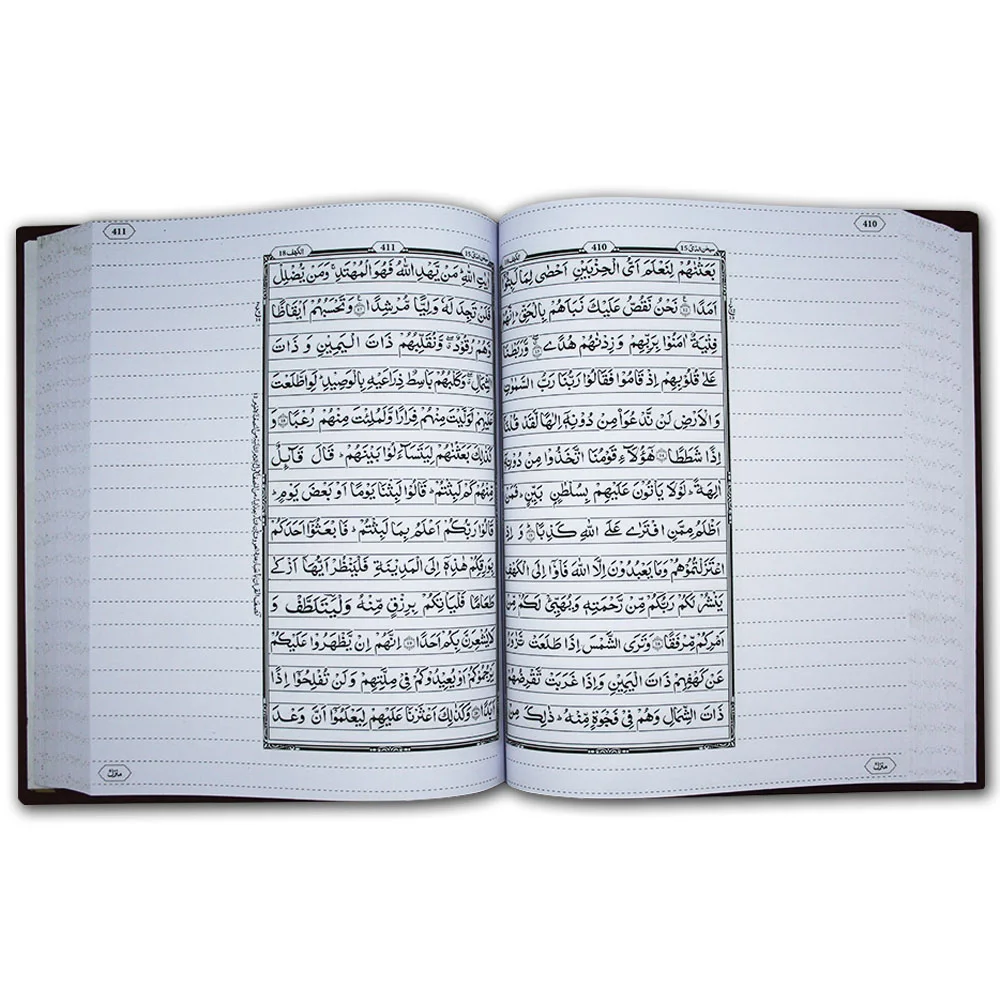 410
410
بَعَثْنٰهُمْ لِنَعْلَمَ اَیُّ الْحِزْبَیْنِ اَحْصٰی لِمَا لَبِثُوْۤا
اَمَدًا نَحْنُ نَقُصُّ عَلَیْكَ نَبَاَهُمْ بِالْحَقِّ اِنَّهُمْ
فِتْیَةٌ اٰمَنُوْا بِرَبِّهِمْ وَ زِدْنٰهُمْ هُدًی وَّ رَبَطْنَا
عَلٰی قُلُوْبِهِمْ اِذْ قَامُوْا فَقَالُوْا رَبُّنَا رَبُّ السَّمٰوٰتِ
وَ الْاَرْضِ لَنْ نَّدْعُوَاۡ مِنْ دُوْنِهٖۤ اِلٰهًا لَّقَدْ قُلْنَاۤ
اِذًا شَطَطًا هٰۤؤُلَآءِ قَوْمُنَا اتَّخَذُوْا مِنْ دُوْنِهٖۤ
اٰلِهَةً لَوْلَا یَاْتُوْنَ عَلَیْهِمْ بِسُلْطٰنٍۭ بَیِّنٍ فَمَنْ
اَظْلَمُ مِمَّنِ افْتَرٰی عَلَی اللّٰهِ كَذِبًا وَ اِذِ
اعْتَزَلْتُمُوْهُمْ وَمَا یَعْبُدُوْنَ اِلَّا اللّٰهَ فَاْوٗۤا اِلَی الْكَهْفِ
یَنْشُرْ لَكُمْ رَبُّكُمْ مِّنْ رَّحْمَتِهٖ وَیُهَیِّئْ لَكُمْ مِّنْ
اَمْرِكُمْ مِّرْفَقًا وَتَرَی الشَّمْسَ اِذَا طَلَعَتْ تَّزٰوَرُ
عَنْ كَهْفِهِمْ ذَاتَ الْیَمِیْنِ وَاِذَا غَرَبَتْ تَّقْرِضُهُمْ
ذَاتَ الشِّمَالِ وَهُمْ فِیْ فَجْوَةٍ مِّنْهُ ذٰلِكَ مِنْ
411
الكهف 18
411
اٰیٰتِ اللّٰهِ مَنْ یَّهْدِ اللّٰهُ فَهُوَ الْمُهْتَدِ وَمَنْ یُّضْلِلْ
فَلَنْ تَجِدَ لَهٗ وَلِیًّا مُّرْشِدًا وَتَحْسَبُهُمْ اَیْقَاظًا
وَّهُمْ رُقُوْدٌ وَّنُقَلِّبُهُمْ ذَاتَ الْیَمِیْنِ وَ ذَاتَ
الشِّمَالِ وَكَلْبُهُمْ بَاسِطٌ ذِرَاعَیْهِ بِالْوَصِیْدِ لَوِ اطَّلَعْتَ
عَلَیْهِمْ لَوَلَّیْتَ مِنْهُمْ فِرَارًا وَّلَمُلِئْتَ مِنْهُمْ رُعْبًا وَ
كَذٰلِكَ بَعَثْنٰهُمْ لِیَتَسَآءَلُوْا بَیْنَهُمْ قَالَ قَآئِلٌ
مِّنْهُمْ كَمْ لَبِثْتُمْ قَالُوْا لَبِثْنَا یَوْمًا اَوْ بَعْضَ یَوْمٍ
قَالُوْا رَبُّكُمْ اَعْلَمُ بِمَا لَبِثْتُمْ فَابْعَثُوْۤا اَحَدَكُمْ
بِوَرِقِكُمْ هٰذِهٖۤ اِلَی الْمَدِیْنَةِ فَلْیَنْظُرْ اَیُّهَاۤ اَزْكٰی
طَعَامًا فَلْیَاْتِكُمْ بِرِزْقٍ مِّنْهُ وَلْیَتَلَطَّفْ وَ
لَا یُشْعِرَنَّ بِكُمْ اَحَدًا اِنَّهُمْ اِنْ یَّظْهَرُوْا عَلَیْكُمْ
یَرْجُمُوْكُمْ اَوْ یُعِیْدُوْكُمْ فِیْ مِلَّتِهِمْ وَلَنْ تُفْلِحُوْۤا اِذًا
اَبَدًا وَكَذٰلِكَ اَعْثَرْنَا عَلَیْهِمْ لِیَعْلَمُوْۤا اَنَّ وَعْدَ